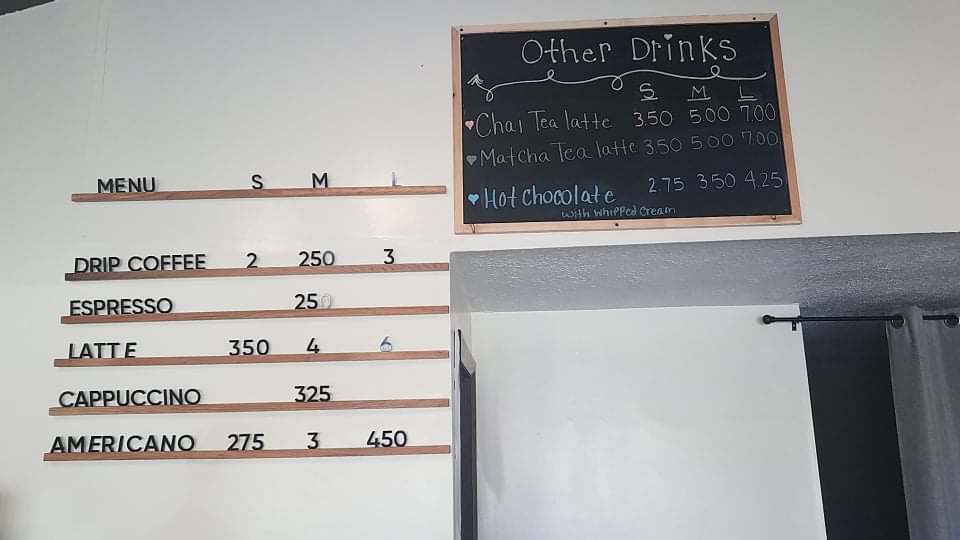 MENU S M L
DRIP COFFEE 2 250 3
ESPRESSO 250
LATTE 350 4 6
CAPPUCCINO 325
AMERICANO 275 3 450
Other Drinks
S M L
Chai Tea latte 350 5.00 7.00
Matcha Tea latte 3.50 5.00 7.00
Hot Chocolate 275 350 425
with Whipped Cream